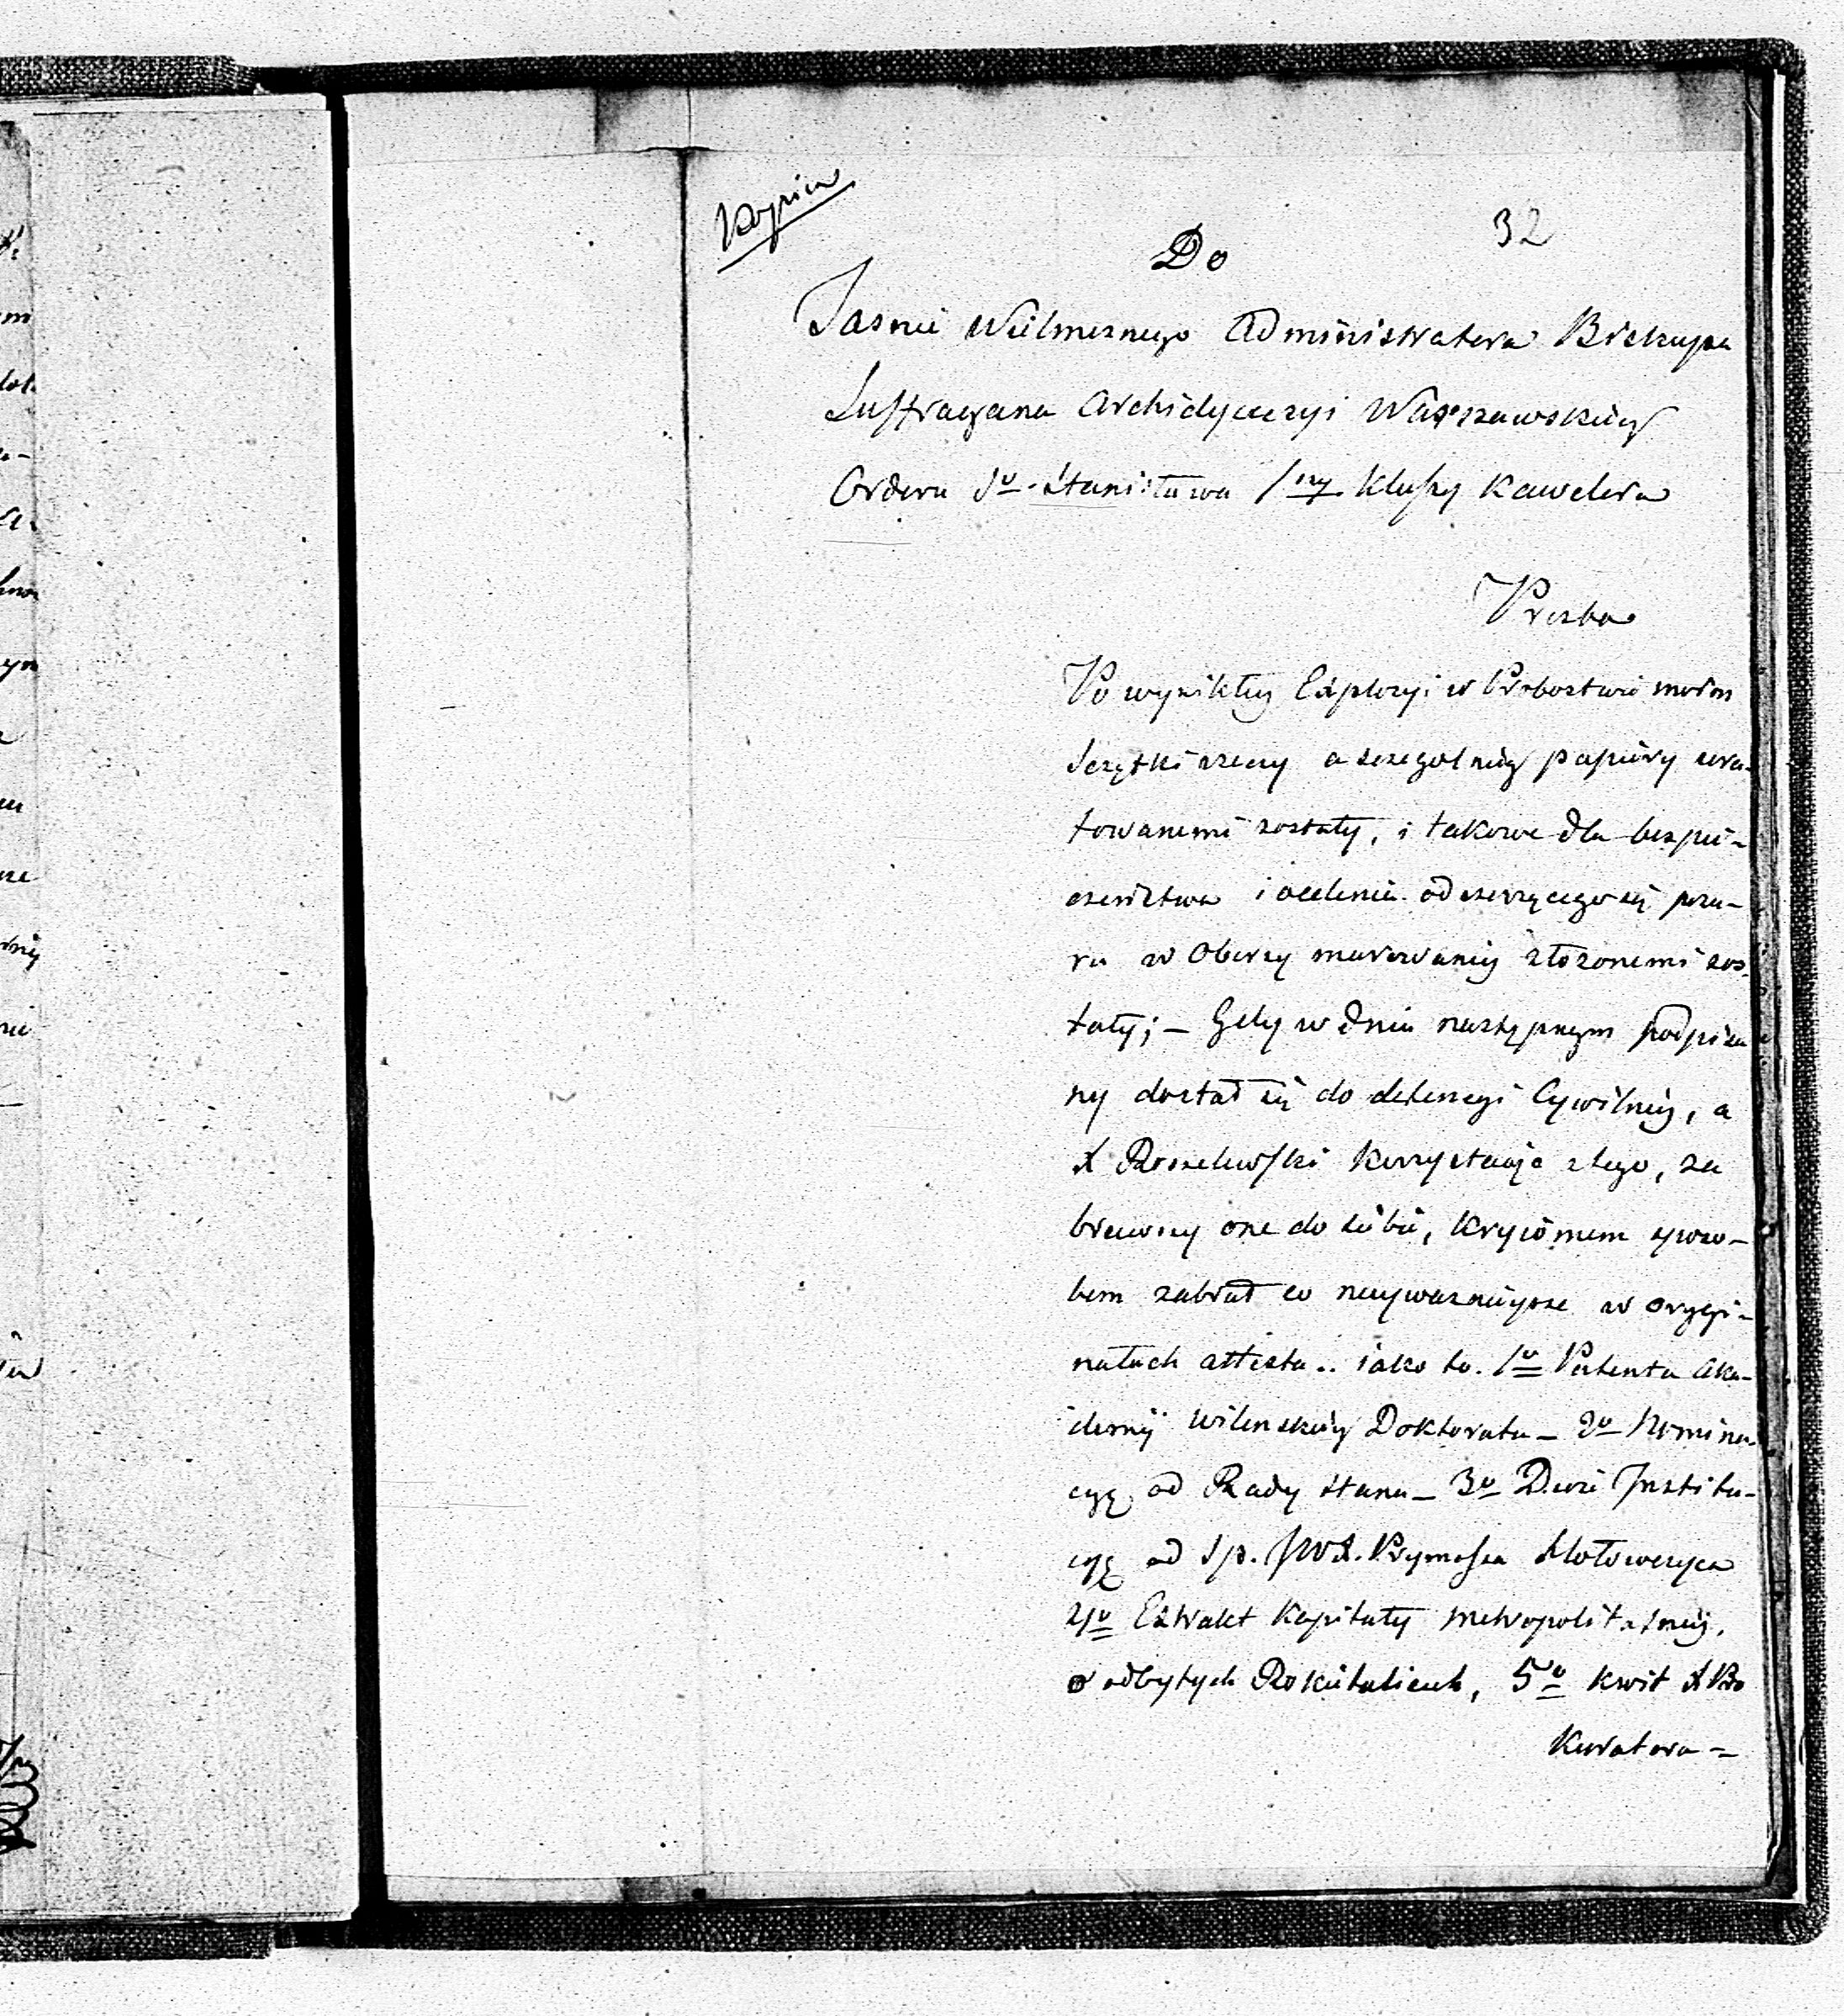 Kopia
32
Do
Jasnie Wielmoznego Administratora Biskupa
Suffragana Archidyecezyi Warszawskiey
Orderu So Stanisława 1ey Klassy Kawalera
Prozba
Po wynikłey Exployi w Probostwie moim
Sczątki rzeczy a szczegolniey papiery ura-
towanemi zostały, i takowe dla bespie-
czenstwa i ocelenia od szerzącego się poza-
ru w Oberzy murowaney złożonemi zos-
tały; – Gdy w dniu następnym podpisa
ny dostał się do detencyi Cywilney, a
X Roszelewski Korzystaiąc z tego, za
brawszy one do siebie, Kryiomem sposo-
bem zabrał co naywaznieysze w orygi-
nałach attesta .. iako to. 1o Patenta Aka-
demij Wilenskiey Doktoratu – 2o Nomina
cyą od Rady Stanu – 3o Dwie Institu-
cyę od Sp. JWX. Prymassa Hołowczyca
4o Extrakt Kapituły Metropolitalney,
o odbytych Rokietaliach, 5o Kwit X Pro
Kuratora =